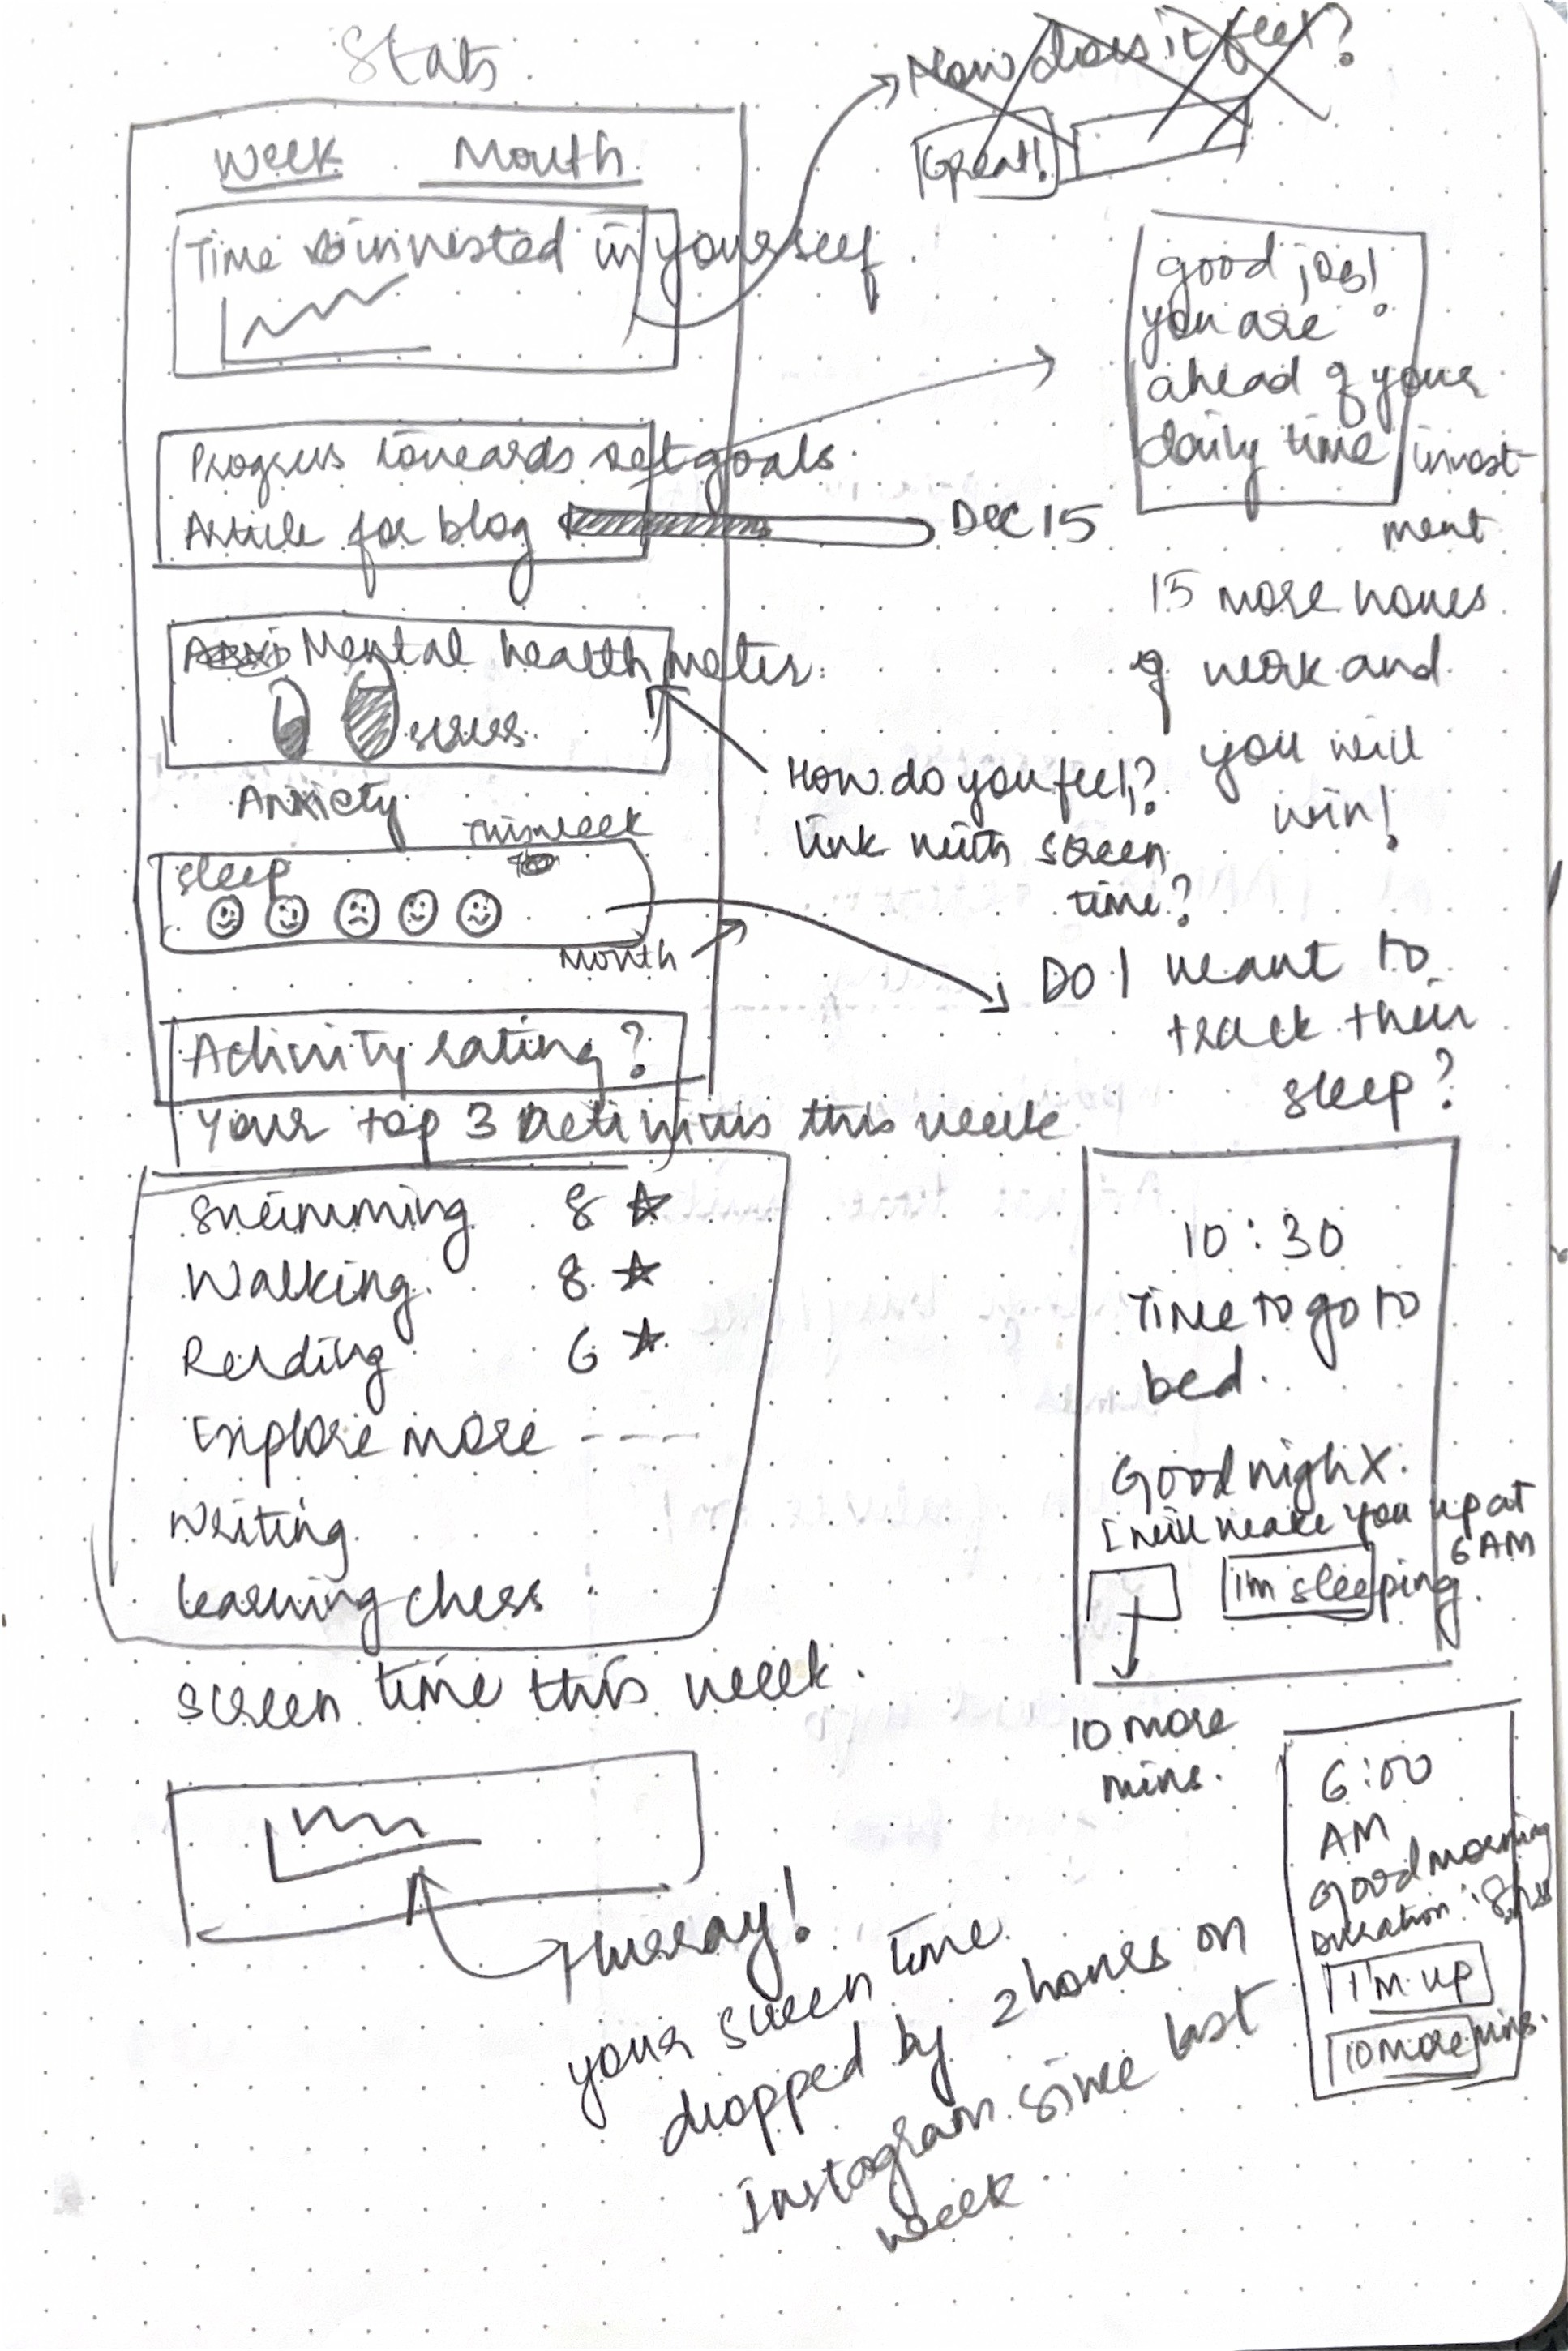 Stats
How does it feel?
Great!
Week Month
Time invested in yourself
good job!
you are
ahead of your
daily time invest-
ment
15 more hours
of work and
you will
win!
Progress towards set goals
Article for blog Dec 15
Mental health meter
stress
Anxiety
How do you feel?
link with screen
time?
This week
sleep
Month
Do I want to
track their
sleep?
Activity rating?
Your top 3 Activities this week
Swimming 8
Walking 8
Reading 6
Explore more ---
Writing
Learning chess
10:30
Time to go to
bed.
Good night X.
I will wake you up at
6 AM
I'm sleeping.
10 more
mins.
screen time this week.
Hurray!
your screen time
dropped by 2 hours on
Instagram since last
week.
6:00
AM
Good morning
Duration: 8 hrs
I'm up
10 more mins.